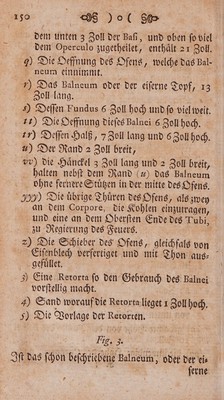 150 ) o (
dem unten 3 Zoll der Basi, und oben so viel
dem Operculo zugetheilet, enthält 21 Zoll.
q) Die Oeffnung des Ofens, welche das Bal-
neum einnimmt.
r) Das Balneum oder der eiserne Topf, 13
Zoll lang.
s) Dessen Fundus 6 Zoll hoch und so viel weit.
tt) Die Oeffnung dieses Balnei 6 Zoll hoch.
tt) Dessen Halß, 7 Zoll lang und 6 Zoll hoch.
u) Der Rand 2 Zoll breit,
vv) die Hänckel 3 Zoll lang und 2 Zoll breit,
halten nebst dem Rand (u) das Balneum
ohne fernere Stützen in der mitte des Ofens.
yyy) Die übrige Thüren des Ofens, als zwey
an dem Corpore, die Kohlen einzutragen,
und eine an dem Obersten Ende des Tubi,
zu Regierung des Feuers.
z) Die Schieber des Ofens, gleichfals von
Eisenblech verfertiget und mit Thon aus-
gefüllet.
3) Eine Retorta so den Gebrauch des Balnei
vorstellig macht.
4) Sand worauf die Retorta lieget 1 Zoll hoch.
5) Die Vorlage der Retorten.
Fig. 3.
Ist das schon beschriebene Balneum, oder der ei-
serne